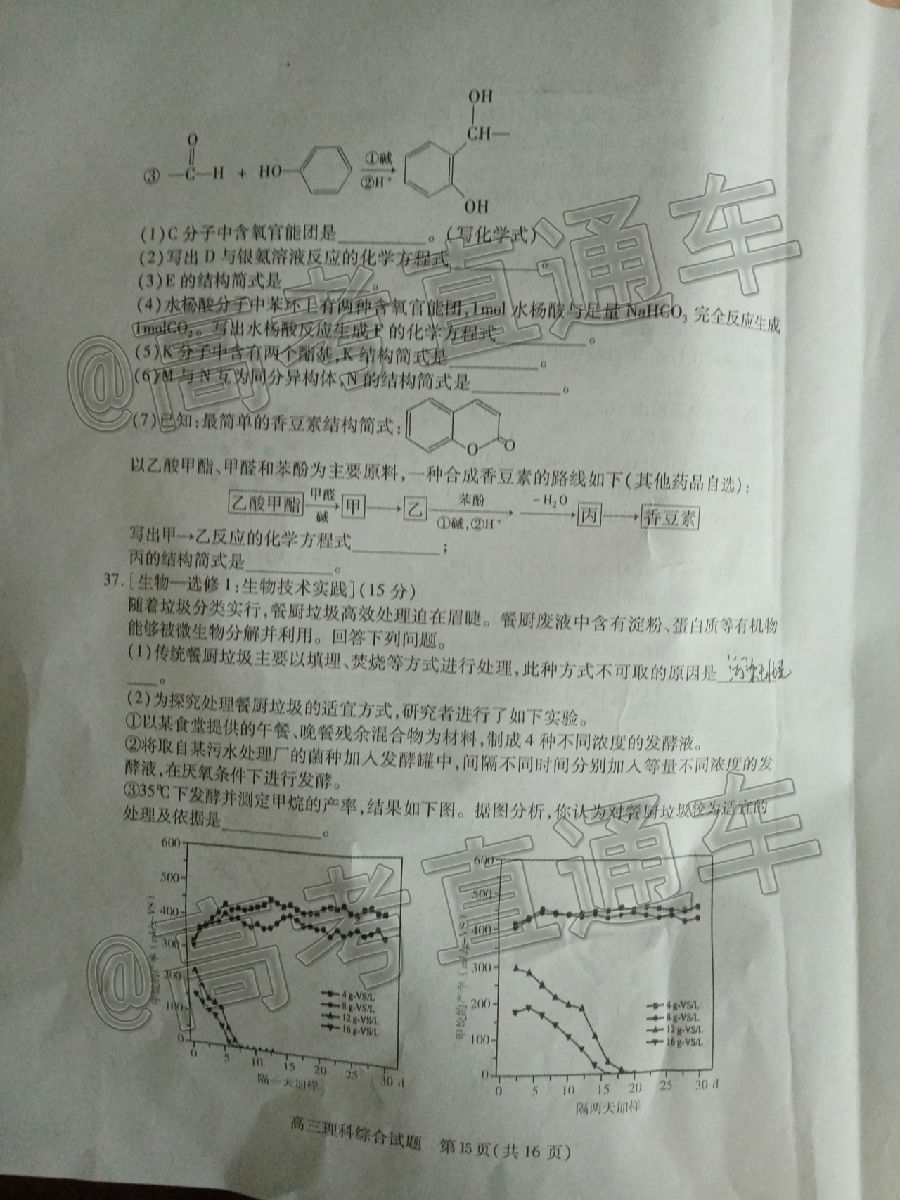 ③ —C—H + HO— ①碱 ②H⁺ CH— OH OH
(1)C 分子中含氧官能团是________。(写化学式)
(2)写出 D 与银氨溶液反应的化学方程式________。
(3)E 的结构简式是________。
(4)水杨酸分子中苯环上有两种含氧官能团,1mol 水杨酸与足量 NaHCO₃ 完全反应生成
1molCO₂。写出水杨酸反应生成 F 的化学方程式________。
(5)K 分子中含有两个酯基,K 结构简式是________。
(6)M 与 N 互为同分异构体,N 的结构简式是________。
(7)已知:最简单的香豆素结构简式: O O
以乙酸甲酯、甲醛和苯酚为主要原料,一种合成香豆素的路线如下(其他药品自选):
乙酸甲酯 甲醛 碱 甲 乙 苯酚 ①碱,②H⁺ －H₂O 丙 香豆素
写出甲→乙反应的化学方程式________;
丙的结构简式是________。
37.[生物—选修 1:生物技术实践](15 分)
随着垃圾分类实行,餐厨垃圾高效处理迫在眉睫。餐厨废液中含有淀粉、蛋白质等有机物
能够被微生物分解并利用。回答下列问题。
(1)传统餐厨垃圾主要以填埋、焚烧等方式进行处理,此种方式不可取的原因是
____。
(2)为探究处理餐厨垃圾的适宜方式,研究者进行了如下实验。
①以某食堂提供的午餐、晚餐残余混合物为材料,制成 4 种不同浓度的发酵液。
②将取自某污水处理厂的菌种加入发酵罐中,间隔不同时间分别加入等量不同浓度的发
酵液,在厌氧条件下进行发酵。
③35℃下发酵并测定甲烷的产率,结果如下图。据图分析,你认为对餐厨垃圾较为适宜的
处理及依据是________。
600
500
400
300
200
100
0
4 g-VS/L
8 g-VS/L
12 g-VS/L
16 g-VS/L
0 5 10 15 20 25 30 d
隔一天加样
600
500
400
300
200
100
0
4 g-VS/L
8 g-VS/L
12 g-VS/L
16 g-VS/L
0 5 10 15 20 25 30 d
隔两天加样
高三理科综合试题 第15页(共16页)
@高考直通车
@高考直通车